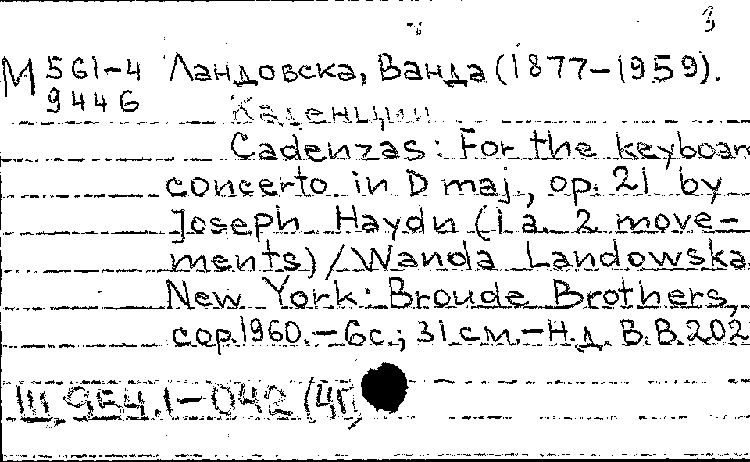 3
М 561-4 Ландовска, Ванда (1877-1959).
9446
Каденции
Cadenzas: For the keyboar
concerto in D maj., op. 21 by
Joseph Haydn (1 a. 2 move-
ments)/Wanda Landowska
New York: Broude Brothers,
cop. 1960.-6с.; 31 см.-Н.д. B.B.202
Ш 954.1-042 (4Г)